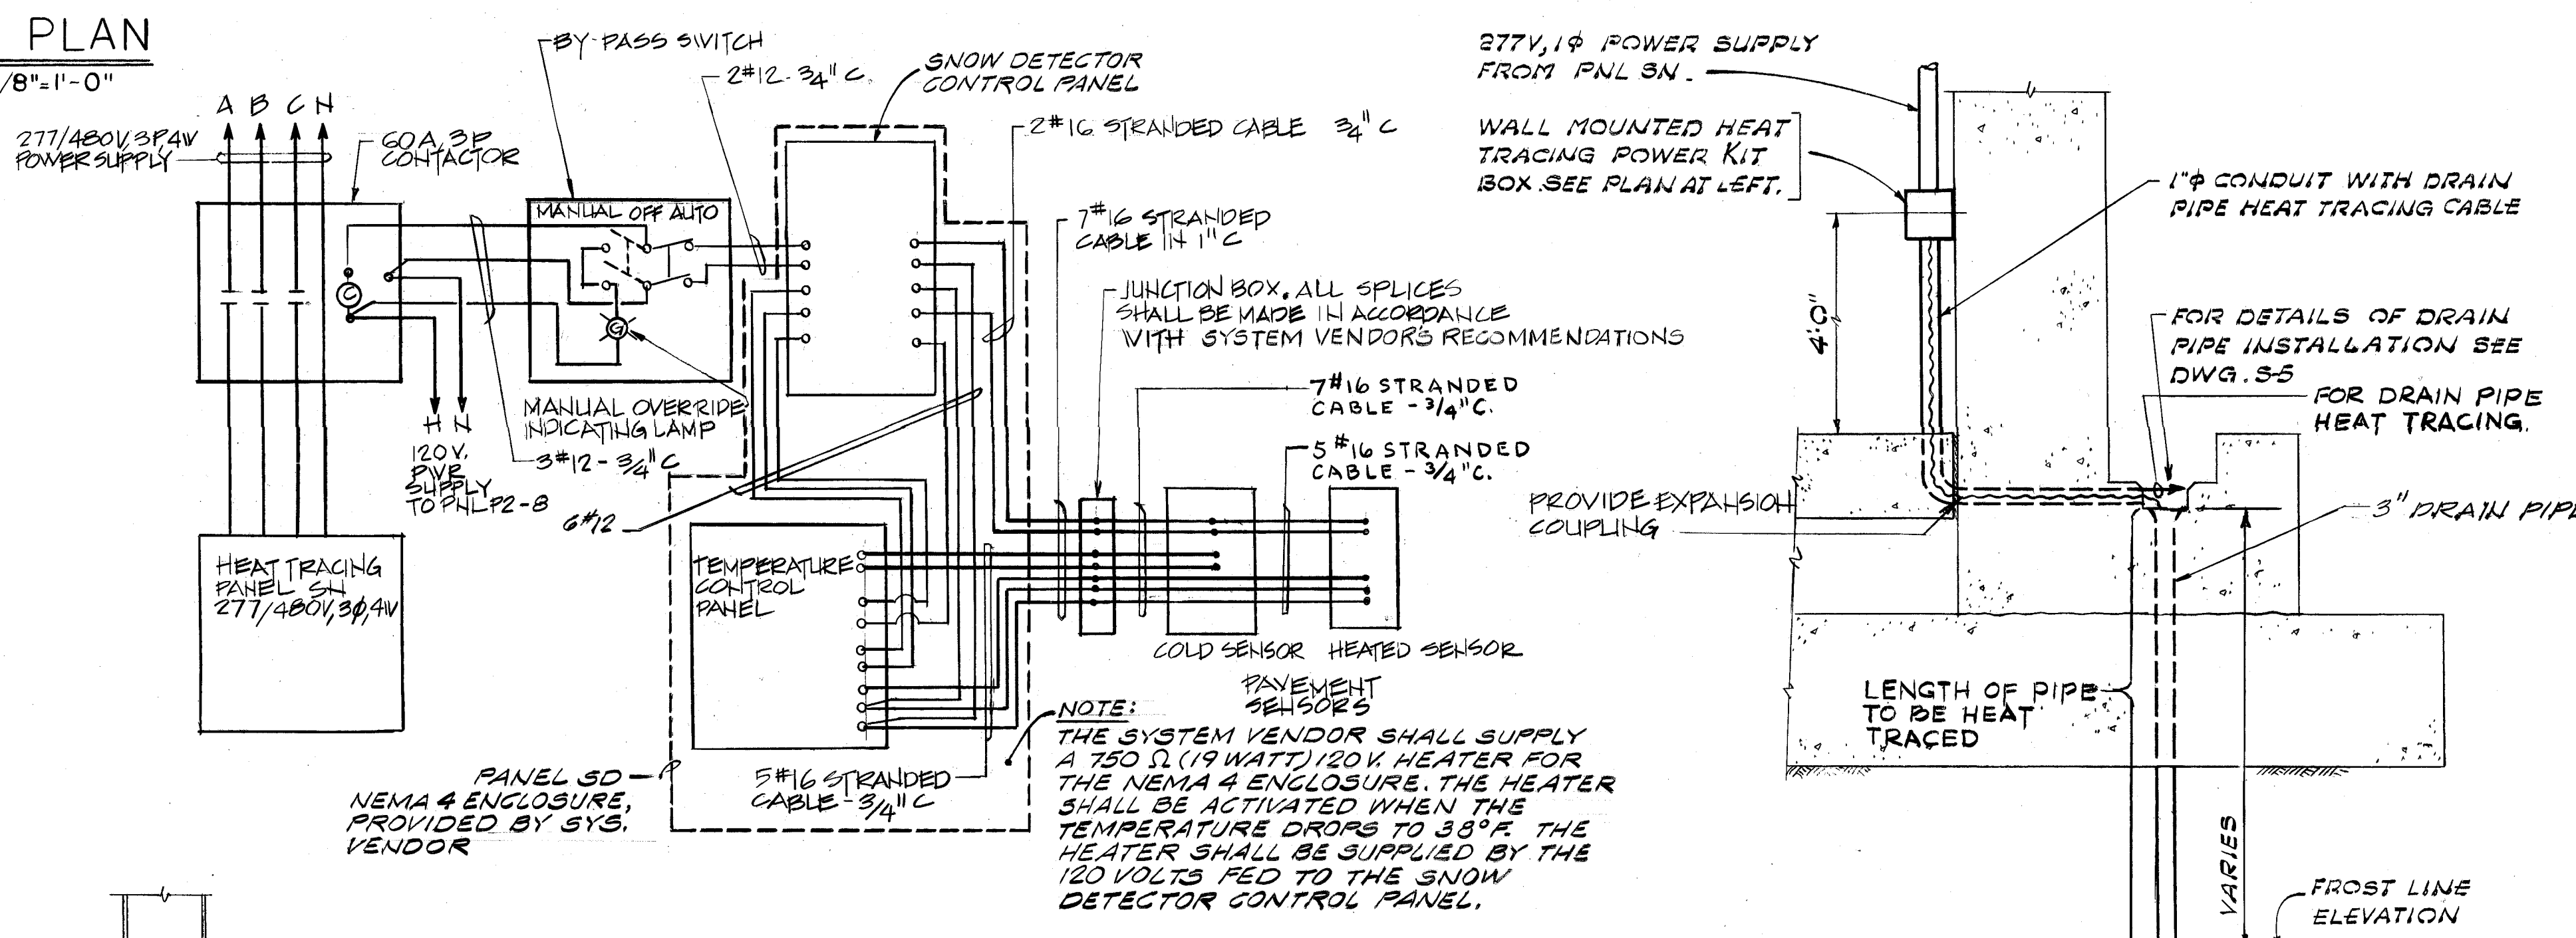 PLAN
/8"=1'-0"
A B C N
277/480V, 3P, 4W
POWER SUPPLY
60A, 3P
CONTACTOR
BY-PASS SWITCH
2#12-3/4" C.
SNOW DETECTOR
CONTROL PANEL
2#16 STRANDED CABLE 3/4" C
MANUAL OFF AUTO
7#16 STRANDED
CABLE IN 1" C
C
G
JUNCTION BOX. ALL SPLICES
SHALL BE MADE IN ACCORDANCE
WITH SYSTEM VENDOR'S RECOMMENDATIONS
7#16 STRANDED
CABLE - 3/4" C.
5#16 STRANDED
CABLE - 3/4" C.
MANUAL OVERRIDE
INDICATING LAMP
H N
120V.
PWR
SUPPLY
TO PNL P2-8
3#12-3/4" C
6#12
HEAT TRACING
PANEL SN
277/480V, 3φ, 4W
TEMPERATURE
CONTROL
PANEL
COLD SENSOR HEATED SENSOR
PAVEMENT
SENSORS
PANEL SD
NEMA 4 ENCLOSURE,
PROVIDED BY SYS.
VENDOR
5#16 STRANDED
CABLE-3/4" C
NOTE:
THE SYSTEM VENDOR SHALL SUPPLY
A 750 Ω (19 WATT) 120V. HEATER FOR
THE NEMA 4 ENCLOSURE. THE HEATER
SHALL BE ACTIVATED WHEN THE
TEMPERATURE DROPS TO 38°F. THE
HEATER SHALL BE SUPPLIED BY THE
120 VOLTS FED TO THE SNOW
DETECTOR CONTROL PANEL.
277V, 1φ POWER SUPPLY
FROM PNL SN.
WALL MOUNTED HEAT
TRACING POWER KIT
BOX. SEE PLAN AT LEFT.
1"φ CONDUIT WITH DRAIN
PIPE HEAT TRACING CABLE
4'-0"
FOR DETAILS OF DRAIN
PIPE INSTALLATION SEE
DWG. S-5
FOR DRAIN PIPE
HEAT TRACING.
PROVIDE EXPANSION
COUPLING
3" DRAIN PIPE
LENGTH OF PIPE
TO BE HEAT
TRACED
VARIES
FROST LINE
ELEVATION